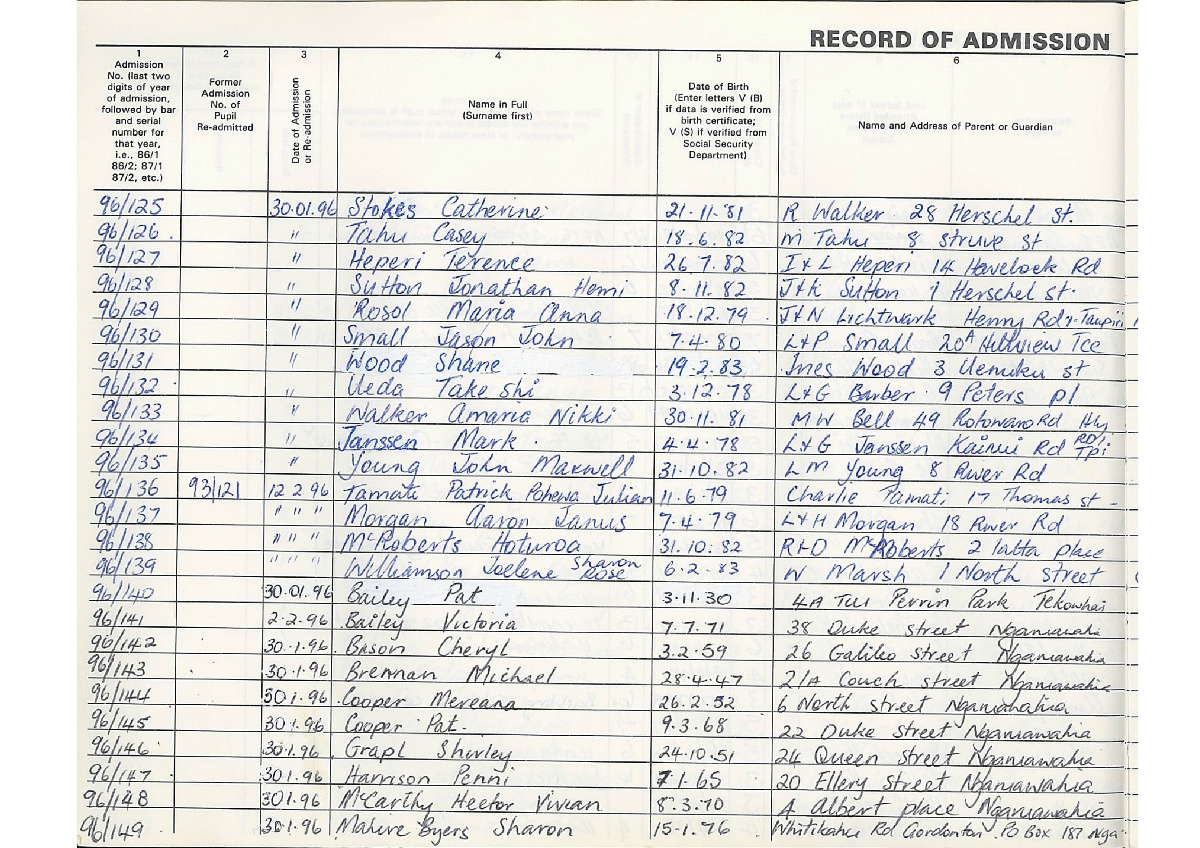 RECORD OF ADMISSION
1 2 3 4 5 6
Admission No. (last two digits of year of admission, followed by bar and serial number for that year, i.e., 86/1 86/2; 87/1 87/2, etc.)
Former Admission No. of Pupil Re-admitted
Date of Admission or Re-admission
Name in Full (Surname first)
Date of Birth (Enter letters V (B) if data is verified from birth certificate; V (S) if verified from Social Security Department)
Name and Address of Parent or Guardian
96/125 30.01.96 Stokes Catherine 21.11.81 R Walker 28 Herschel st.
96/126 " Tahu Casey 18.6.82 M Tahu 8 Struve st
96/127 " Heperi Terence 26.7.82 I & L Heperi 14 Havelock Rd
96/128 " Sutton Jonathan Hemi 8.11.82 J & K Sutton 1 Herschel st.
96/129 " Rosol Maria Anna 18.12.79 J & N Lichtwark Henry Rd Taupiri
96/130 " Small Jason John 7.4.80 L & P Small 20A Hillview Tce
96/131 " Wood Shane 19.2.83 Ines Wood 3 Uenuku st
96/132 " Ueda Takeshi 3.12.78 L & G Barber 9 Peters pl
96/133 " Walker Amaria Nikki 30.11.81 M W Bell 49 Rotowaro Rd Hly
96/134 " Janssen Mark 4.4.78 L & G Janssen Kainui Rd RD1 Tpi
96/135 " Young John Maxwell 31.10.82 L M Young 8 River Rd
96/136 93/121 12 2 96 Tamati Patrick Pohewa Julian 11.6.79 Charlie Tamati 17 Thomas st
96/137 " " " Morgan Aaron Janus 7.4.79 L & H Morgan 18 River Rd
96/138 " " " McRoberts Hoturoa 31.10.82 R & D McRoberts 2 latta place
96/139 " " " Williamson Joelene Sharon Rose 6.2.83 W Marsh 1 North street
96/140 30.01.96 Bailey Pat 3.11.30 4A Tui Perrin Park Tekowhai
96/141 2.2.96 Bailey Victoria 7.7.71 38 Duke street Ngaruawahia
96/142 30.1.96 Bason Cheryl 3.2.59 26 Galileo street Ngaruawahia
96/143 30.1.96 Brennan Michael 28.4.47 21A Couch street Ngaruawahia
96/144 30 1.96 Cooper Mereana 26.2.52 6 North street Ngaruawahia
96/145 30 1.96 Cooper Pat. 9.3.68 22 Duke street Ngaruawahia
96/146 30.1.96 Grapl Shirley 24.10.51 24 Queen street Ngaruawahia
96/147 30 1.96 Harrison Penni 7 1.65 20 Ellery street Ngaruawahia
96/148 30 1.96 McCarthy Hector Vivian 8.3.70 A Albert place Ngaruawahia
96/149 30.1.96 Mahire Byers Sharon 15.1.76 Whitikahu Rd Gordonton. PO Box 187 Nga